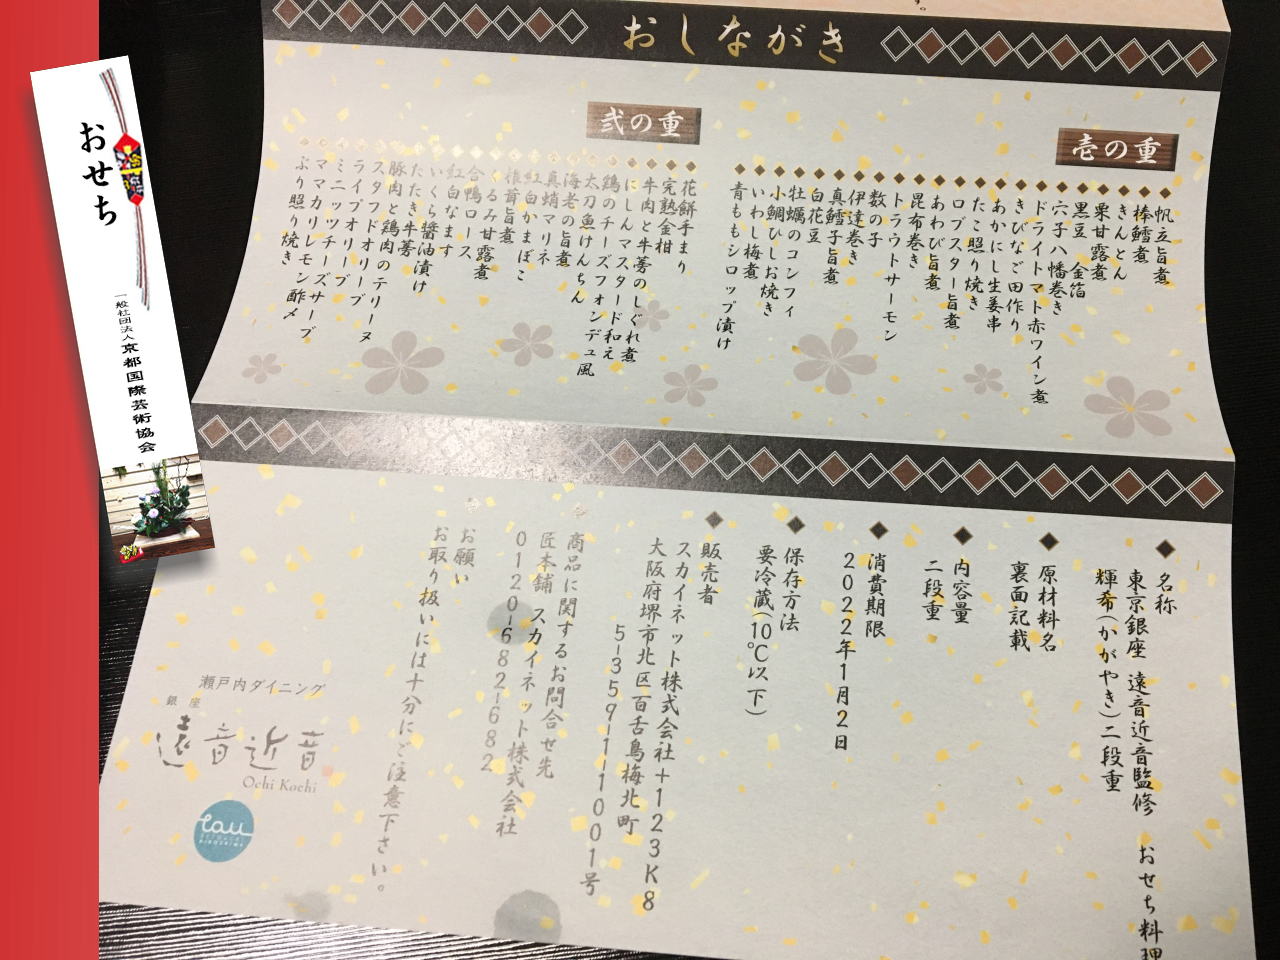 おしながき
壱の重
帆立旨煮
棒鱈煮
きんとん
栗甘露煮
黒豆 金箔
穴子八幡巻き
ドライトマト赤ワイン煮
きびなご田作り
あかにし生姜串
たこ照り焼き
ロブスター旨煮
あわび旨煮
昆布巻き
トラウトサーモン
数の子
伊達巻き
真鱈子旨煮
白花豆
牡蠣のコンフィ
小鯛ひしお焼き
いわし梅煮
青ももシロップ漬け
弐の重
花餅手まり
完熟金柑
牛肉と牛蒡のしぐれ煮
にしんマスタード和え
鶏のチーズフォンデュ風
太刀魚けんちん
海老の旨煮
真蛸マリネ
紅白かまぼこ
椎茸旨煮
くるみ甘露煮
合鴨ロース
紅白なます
いくら醤油漬け
たたき牛蒡
豚肉と鶏肉のテリーヌ
スタフドオリーブ
ライプオリーブ
ミニッツチーズサーブ
ママカリレモン酢〆
ぶり照り焼き
名称
東京銀座 遠音近音監修 おせち料理
輝希(かがやき)二段重
原材料名
裏面記載
内容量
二段重
消費期限
2022年1月2日
保存方法
要冷蔵(10℃以下)
販売者
スカイネット株式会社+123K8
大阪府堺市北区百舌鳥梅北町
5-359-1-1001号
商品に関するお問合せ先
匠本舗 スカイネット株式会社
0120-682-682
お願い
お取り扱いには十分にご注意下さい。
瀬戸内ダイニング
銀座
遠音近音
Ochi Kochi
tau
おせち
一般社団法人京都国際芸術協会